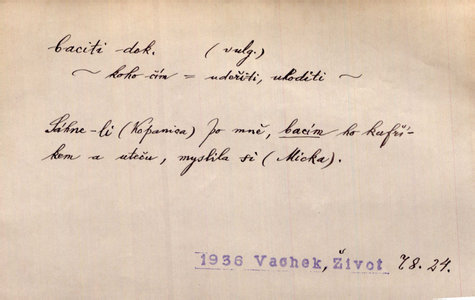 baciti dok. (vulg.)
~ koho čím = udeřiti, uhoditi ~
Sáhne-li (Kopanica) po mně, bacím ho kufří-
kem a uteču, myslila si (Micka).
1936 Vachek, Život 78.24.